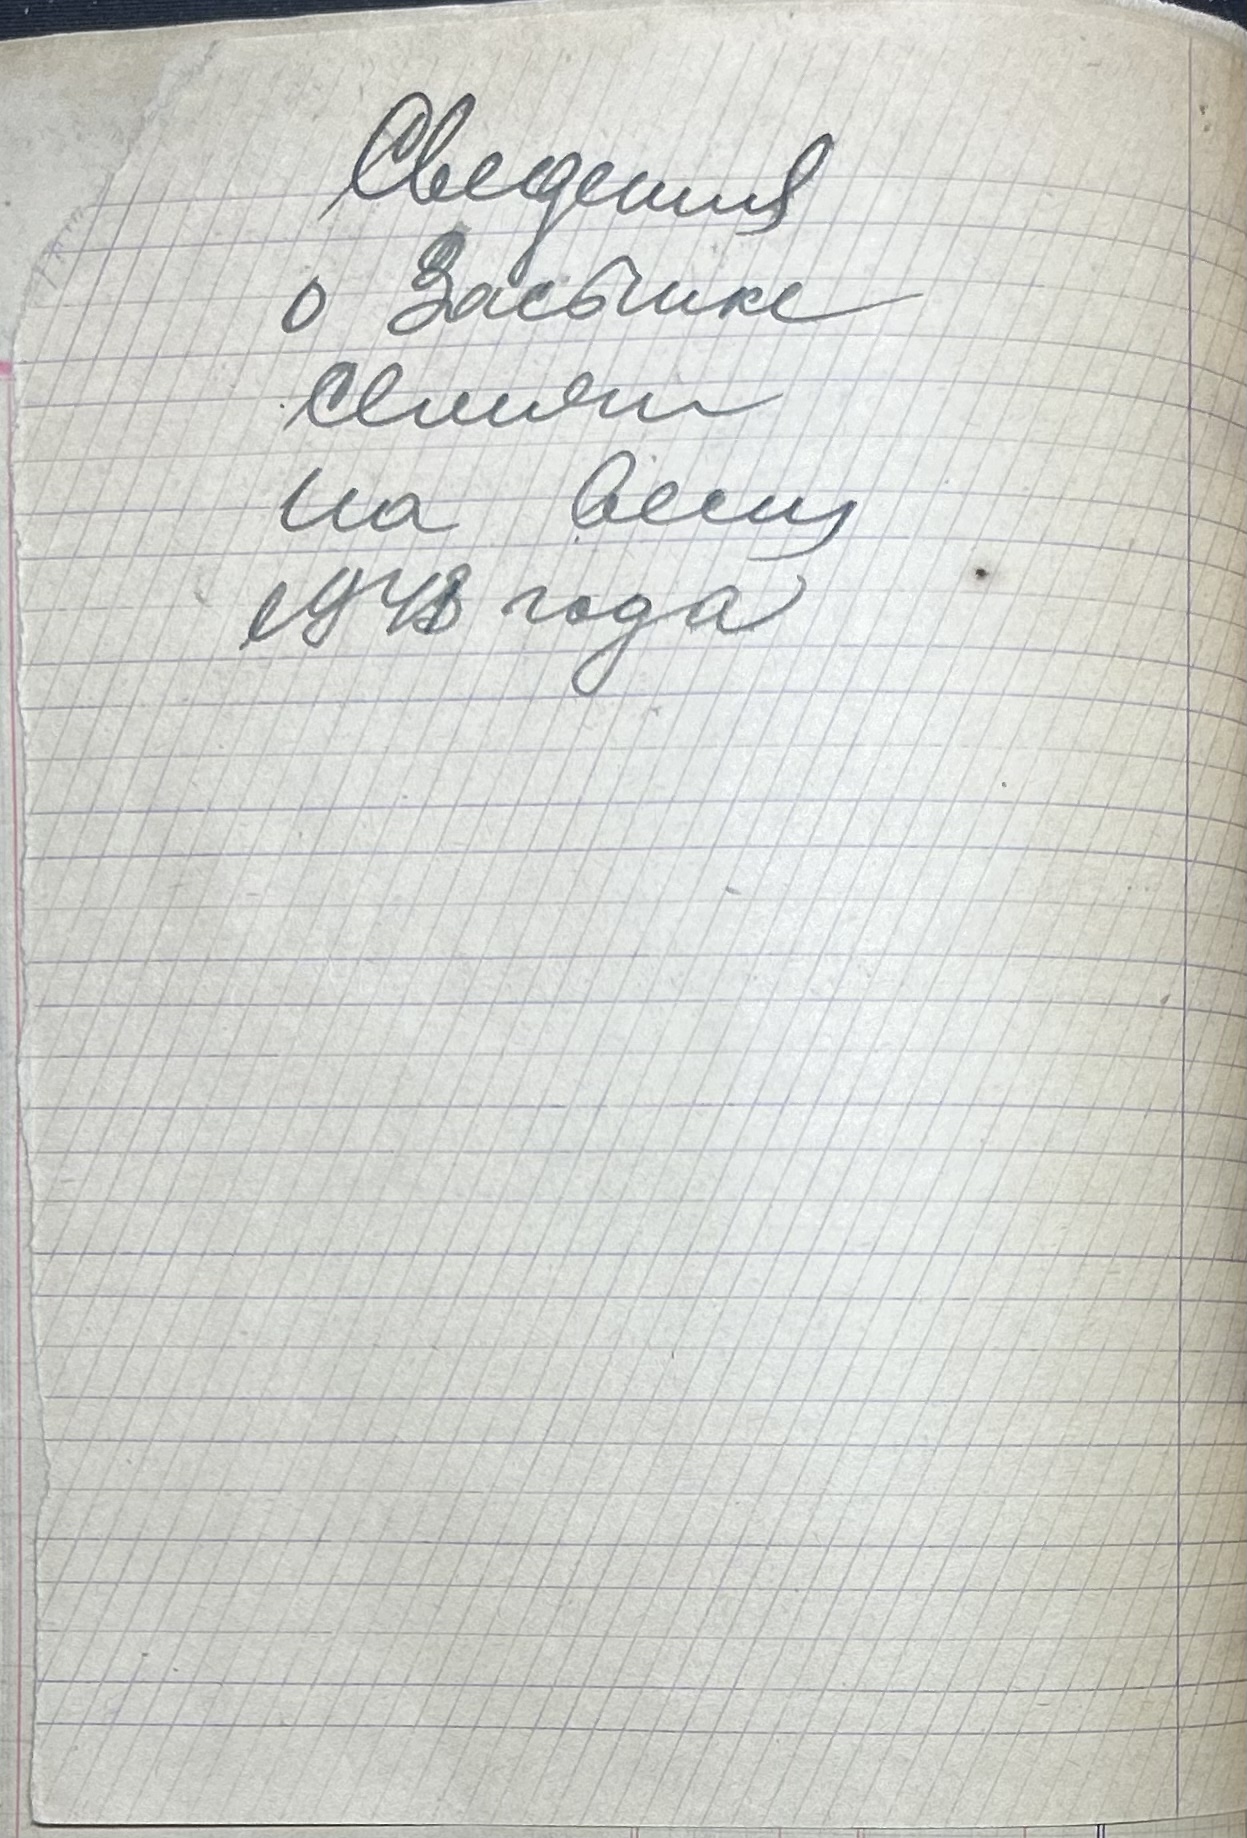 Сведения
о Засыпке
Семян
на весну
1948 года